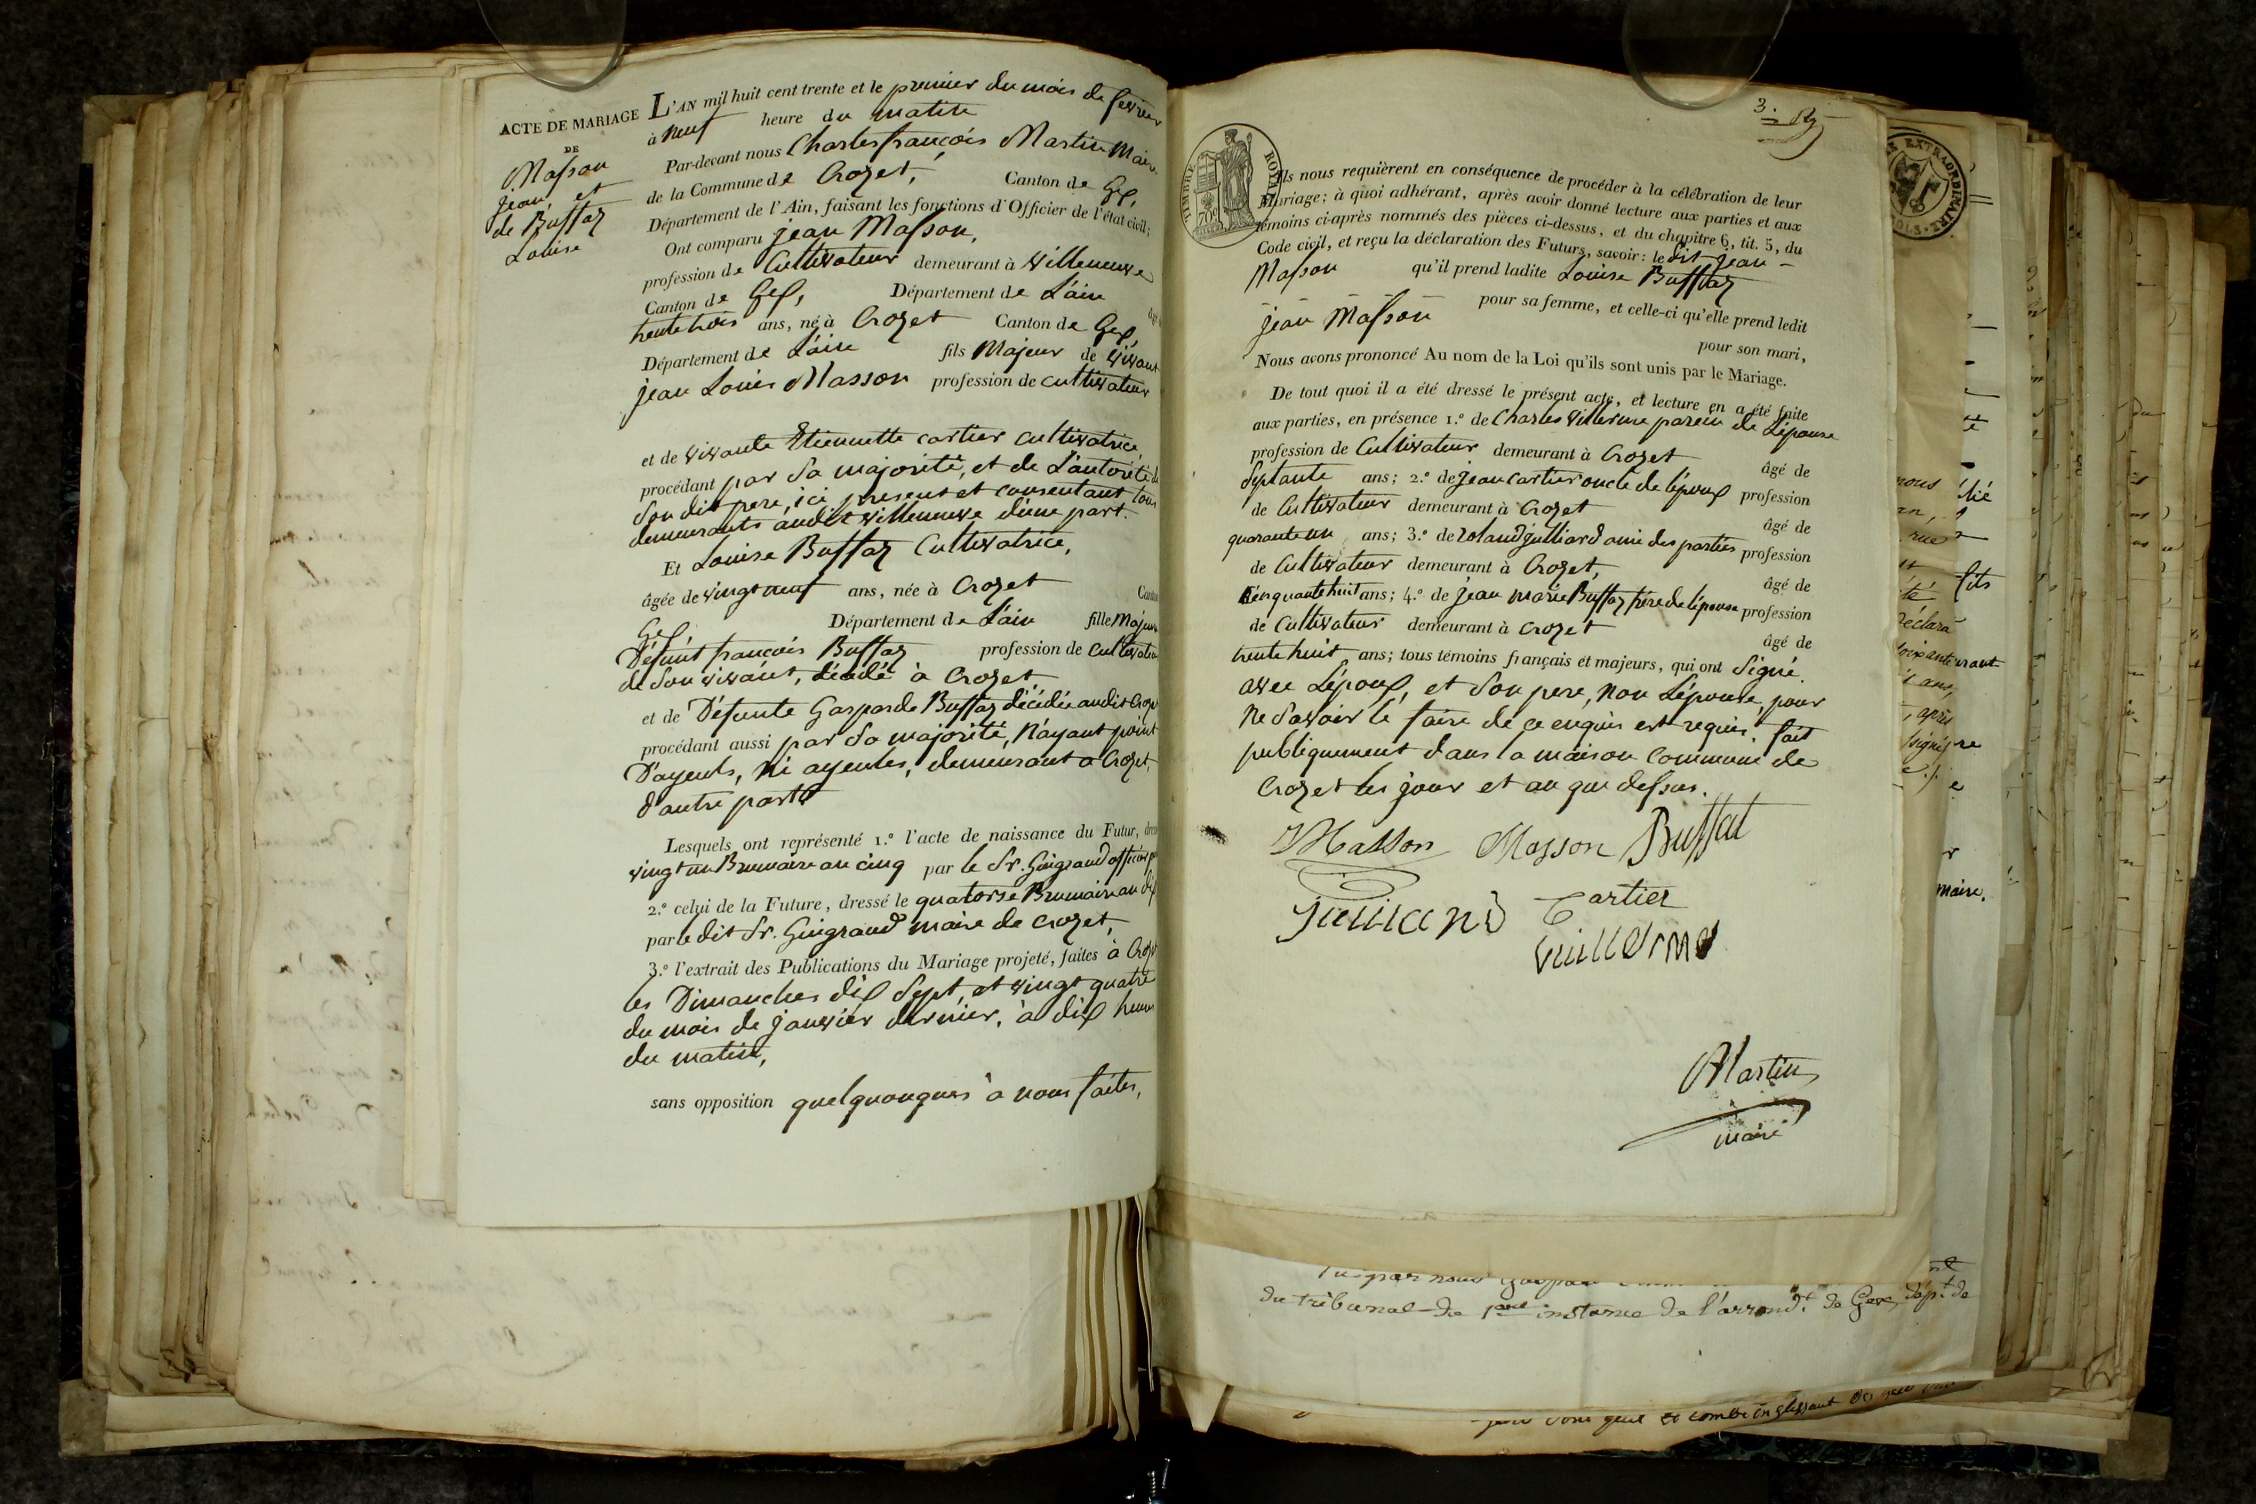 ACTE DE MARIAGE
DE
Masson
jean, et
de Buffaz
Louise
L'AN mil huit cent trente et le premier du mois de fevrier
à neuf heure du matin
Par-devant nous Charles françois Martin Maire
de la Commune de Crozet, Canton de Gex,
Département de l'Ain, faisant les fonctions d'Officier de l'état civil;
Ont comparu jean Masson,
profession de Cultivateur demeurant à villeneuve
Canton de Gex, Département de L'ain âgé
trente trois ans, né à Crozet Canton de Gex,
Département de L'ain fils Majeur de vivant
jean Louis Masson profession de cultivateur
et de vivante Etiennette cartier cultivatrice,
procédant par sa majorité, et de L'autorité de
son dit pere, ici present et consentant, tous
demeurants audit villeneuve d'une part.
Et Louise Buffaz Cultivatrice,
âgée de vingt neuf ans, née à Crozet Canton
Gex, Département de L'ain fille Majeure
Défunt françois Buffaz profession de cultivateur
de son vivant, décédé à Crozet
et de Défunte Gasparde Buffaz décédée audit Crozet
procédant aussi par sa majorité, N'ayant point
D'ayeuls, ni ayeules, demeurant a Crozet,
d'autre part
Lesquels ont représenté 1.º l'acte de naissance du Futur,
vingt un Brumaire an cinq par le Sr. Gingraud officier
2.º celui de la Future, dressé le quatorse Brumaire an dix
par le dit Sr. Gingraud maire de Crozet,
3.º l'extrait des Publications du Mariage projeté, faites à Crozet
les Dimanches dix Sept, et vingt quatre
du mois de janvier dernier, à dix heures
du matin,
sans opposition quelquonques à nous faites,
3.
TIMBRE ROYAL
70c
Ils nous requièrent en conséquence de procéder à la célébration de leur
Mariage; à quoi adhérant, après avoir donné lecture aux parties et aux
témoins ci-après nommés des pièces ci-dessus, et du chapitre 6, tit. 5, du
Code civil, et reçu la déclaration des Futurs, savoir: le dit jean
Masson qu'il prend ladite Louise Buffaz
pour sa femme, et celle-ci qu'elle prend ledit
jean Masson pour son mari,
Nous avons prononcé Au nom de la Loi qu'ils sont unis par le Mariage.
De tout quoi il a été dressé le présent acte, et lecture en a été faite
aux parties, en présence 1.º de Charles villerme parein de L'épouse
profession de Cultivateur demeurant à Crozet âgé de
Septante ans; 2.º de jean cartier oncle de l'époux profession
de Cultivateur demeurant à Crozet âgé de
quarante un ans; 3.º de roland julliard ami des parties profession
de Cultivateur demeurant à Crozet, âgé de
Cinquante huit ans; 4.º de jean marie Buffaz frère de l'épouse profession
de Cultivateur demeurant à crozet âgé de
trente huit ans; tous témoins français et majeurs, qui ont Signé
avec L'époux, et son pere, non L'épouse, pour
ne savoir le faire de ce enquis est requis. fait
publiquement dans la maison commune de
Crozet les jour et an que dessus.
J Masson Masson Buffat
juilliand Cartier
Vuillerme
Martin
maire
du tribunal de 1ere instance de l'arrondt. de Gex, dépt. de